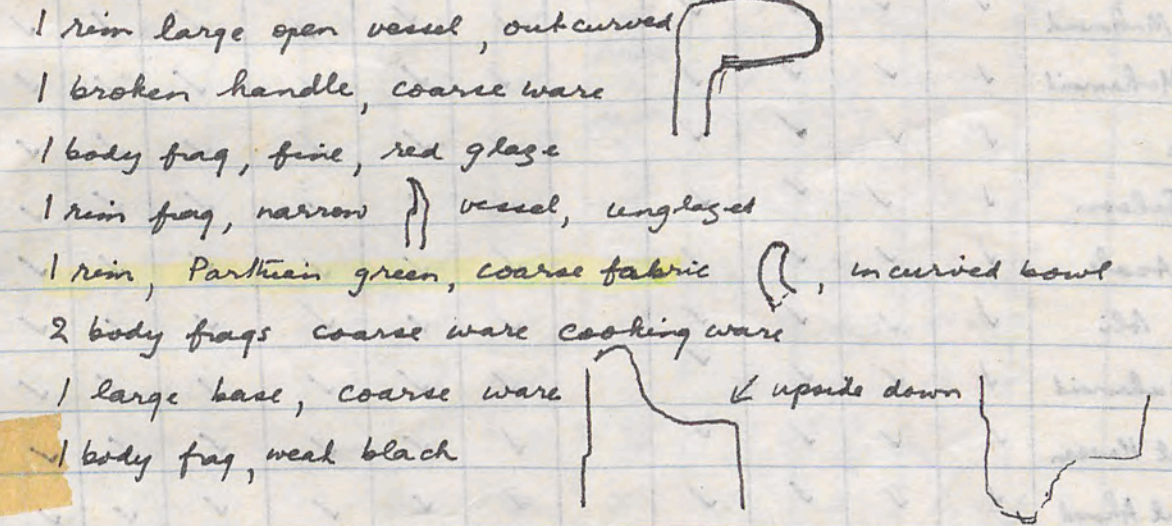 1 rim large open vessel, outcurved
1 broken handle, coarse ware
1 body frag, fine, red glaze
1 rim frag, narrow vessel, unglazed
1 rim, Parthian green, coarse fabric, incurved bowl
2 body frags coarse ware cooking ware
1 large base, coarse ware ↙ upside down
1 body frag, weak black